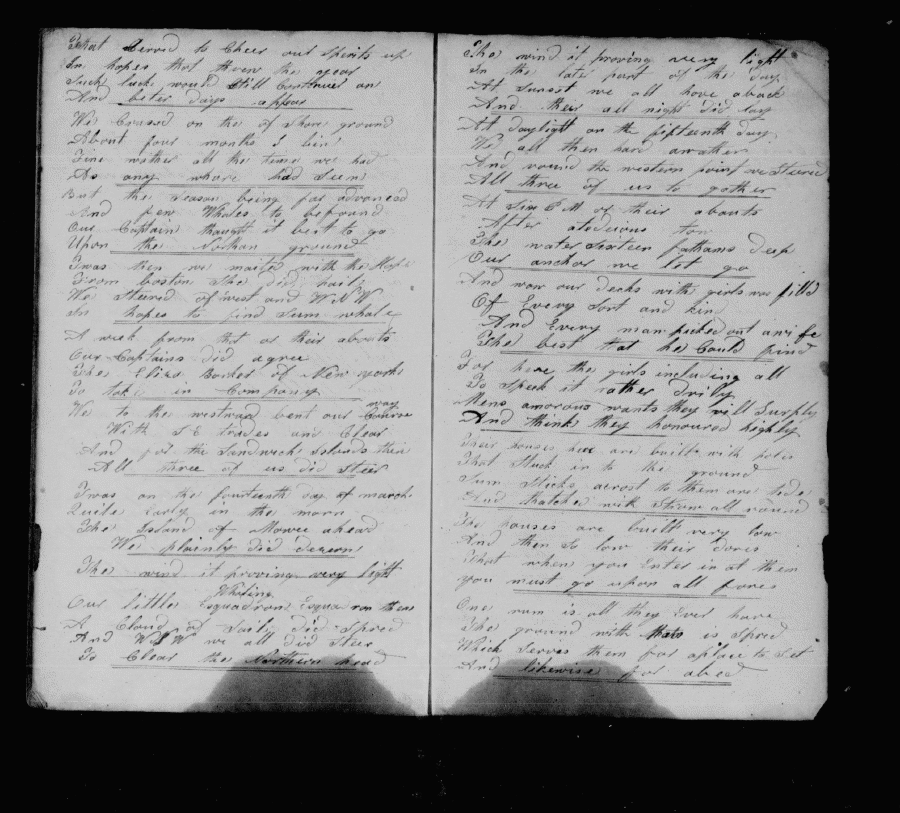 That Servd to Cheer our Spirits up
In hopes that threw the year
Such luck would Still Continue on
And beter days appear
We Crused on the of Shore ground
About four months I bien
Fine wather all the time we had
As any whare had Seen
But the Season being far advanced
And few Whales to befound
Our Captain thaught it best to go
Upon the Northan ground
Twas then we maited with the Hope
From boston She did hail
We Steered of west and W N W
In hopes to find Sum whale
A week from that or their abouts
Our Captains did agree
The Eliza Barker of New york
To take in Company
We to the westward bent our way
With S E trades and Clear
And for the Sandwich Islands then
All three of us did Steer
Twas on the fourteenth day of march
Quite Early in the morn
The Island of Mowee ahead
We plainly did
The wind it proving very light
Our little Whaling Esquadron
A Cloud of Sails did Spred
And W S W we all did Steer
To Clear the Northern head
The wind it proving very light
In the later part of the day
At Sunset we all hove aback
And their all night did lay
At daylight on the fifteenth day
We all then hard
And round the western point we Steered
All three of us to gather
At Six P M or their abouts
After atedious tow
The water Sixteen fathams deep
Our anchor we let go
And now our decks with girls was filld
Of Every Sort and kind
And Every man picked out awife
The best tat he Could find
For here the girls including all
To Speek it rather drily
Mens amorous wants they will Surply
And think they honoured highly
Their houses here are built with poles
That Stuck in to the ground
Sum Sticks acrost to them are tide
And thatched with Straw all round
The houses are built very low
And then So low their dores
That when you Enter in at them
you must go upon all fores
One rum is all they Ever have
The ground with mats is Spred
Which Serves them for aplace to Set
And likewise for abed